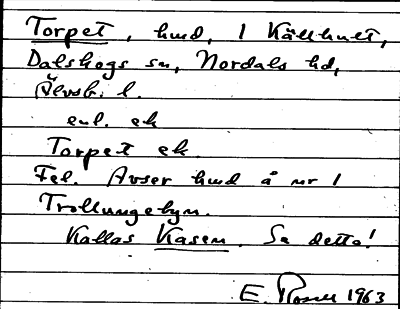 Torpet, hmd, 1 Källhult,
Dalskogs sn, Nordals hd,
Älvsb. l.
enl. ek
Torpet ek.
Fel. Avser hmd å nr 1
Trollungebyn.
Kallas Kasen. Se detta!
E. Rosell 1963